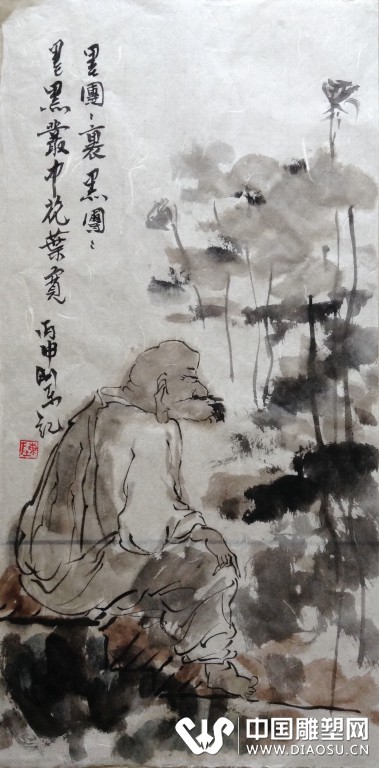 墨團〻裏黑團〻
墨黑叢中花葉寬
丙申 山东 记
中国雕塑网
WWW.DIAOSU.CN